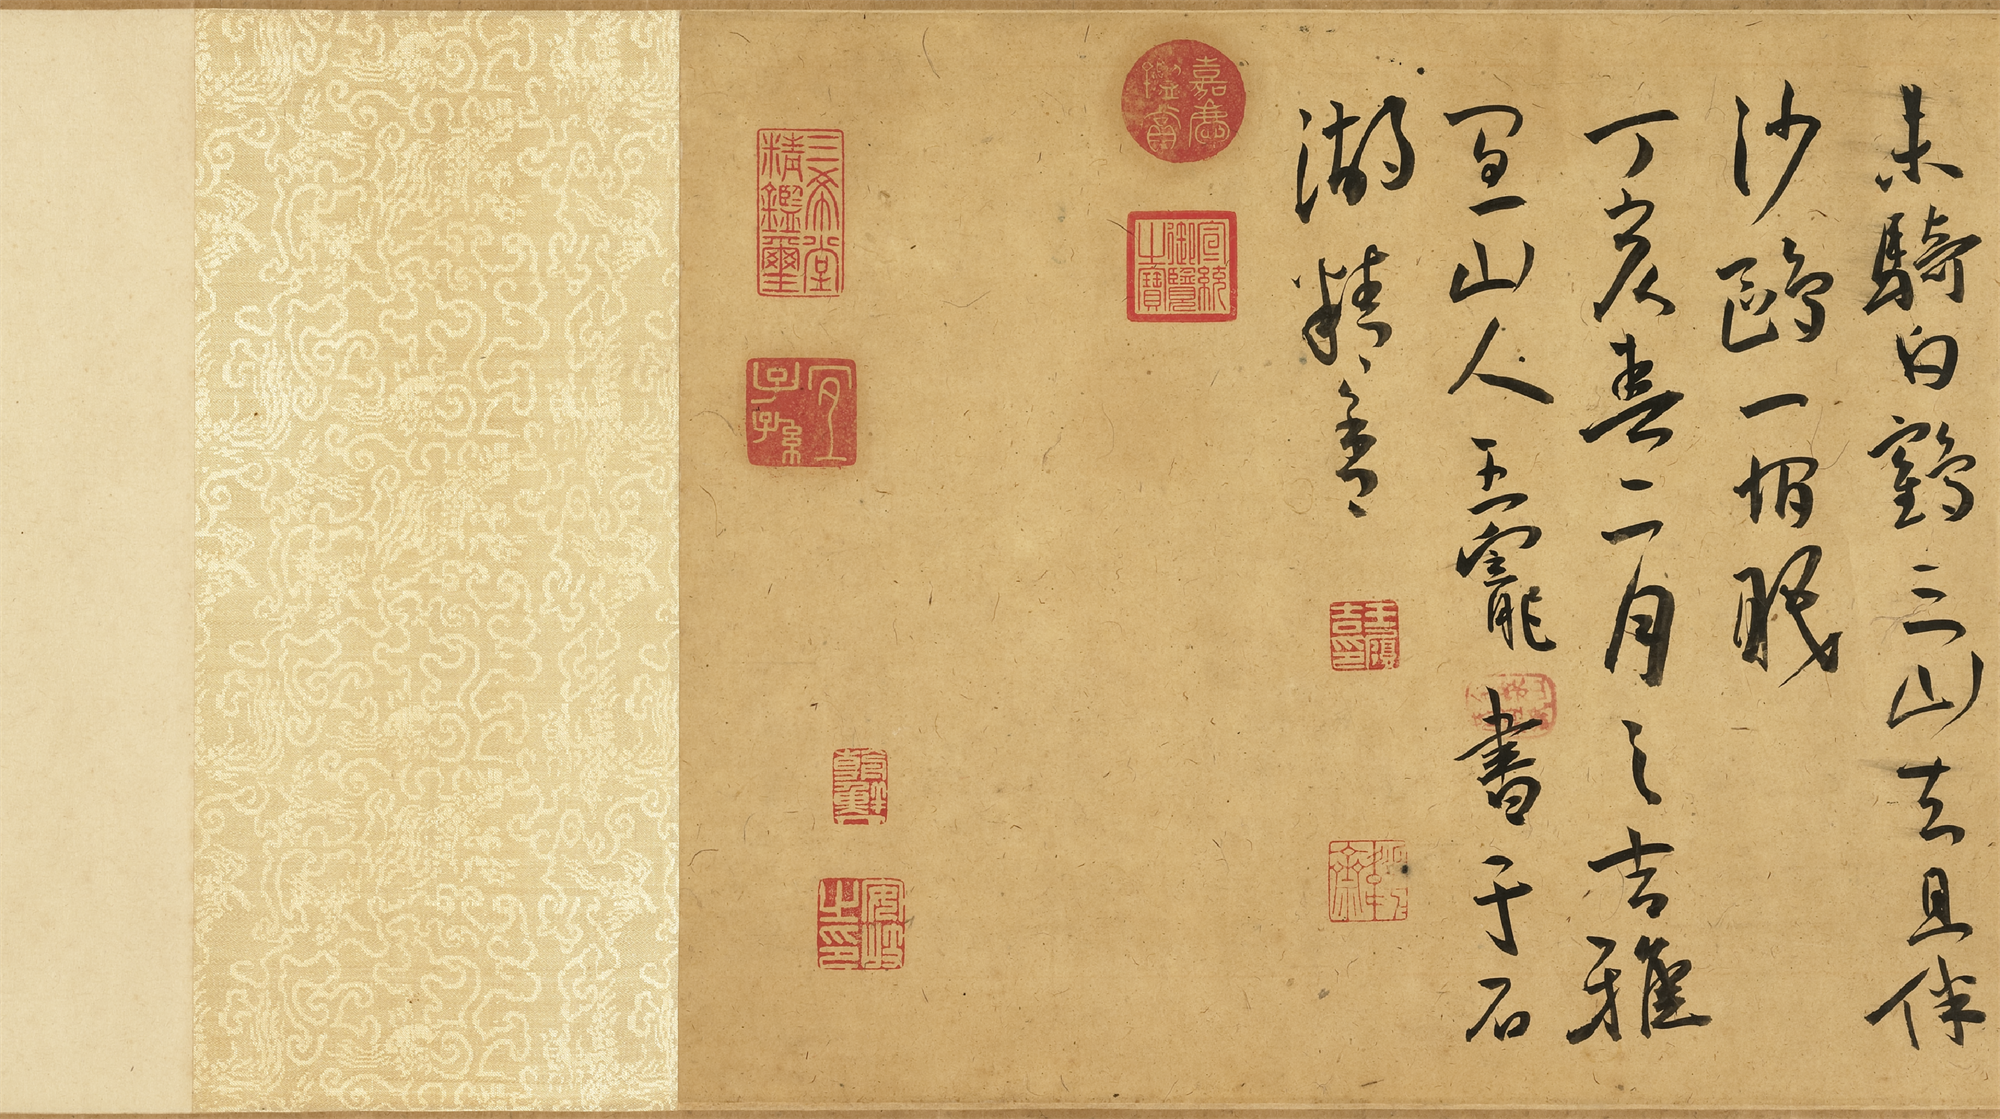 未騎白鶴三山去且伴
沙鷗一眠
丁亥春二月之吉雅
宜山人王寵書于石
湖精舍
王履吉印
嘉慶鑑賞
宣統御覽之寶
三希堂精鑑璽
宜子孫
安岐之印